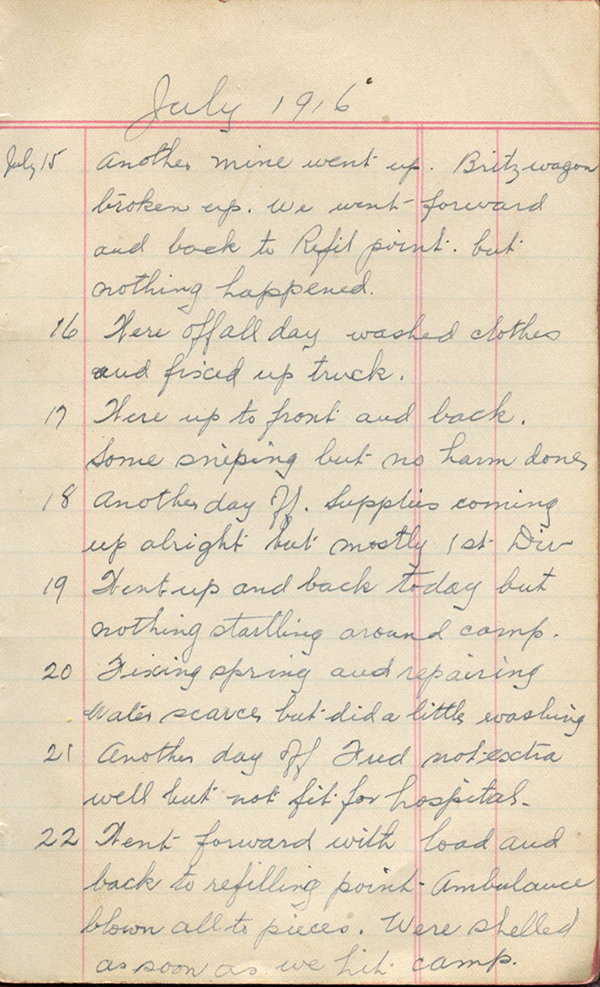 July 1916
July 15 Another mine went up. Britz wagon
broken up. We went forward
and back to Refil point. but
nothing happened.
16 Were off all day washed clothes
and fixed up truck.
17 Were up to front and back.
Some sniping but no harm done,
18 Another day off. Supplies coming
up alright but mostly 1st Div
19 Went up and back today but
nothing startling around camp.
20 Fixing spring and repairing
Water scarce, but did a little washing
21 Another day off Fred not extra
well but not fit for hospital.
22 Went forward with load and
back to refilling point. Ambulance
blown all to pieces. Were shelled
as soon as we hit camp.